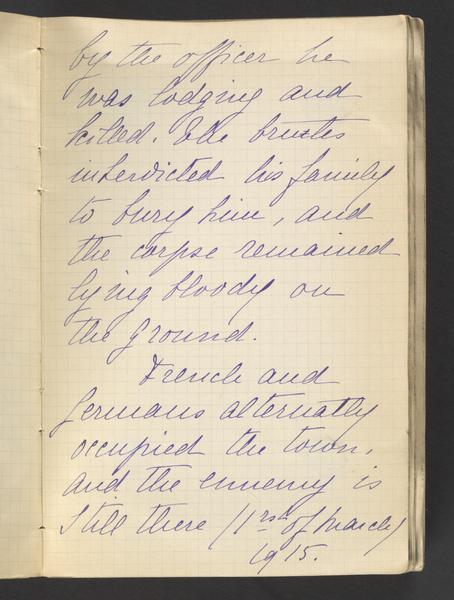 by the officer he
was lodging and
killed. The brutes
interdicted his family
to bury him, and
the corpse remained
lying bloody on
the ground.
French and
germans alternatly
occupied the town,
and the ennemy is
still there /1rst of march/
1915.